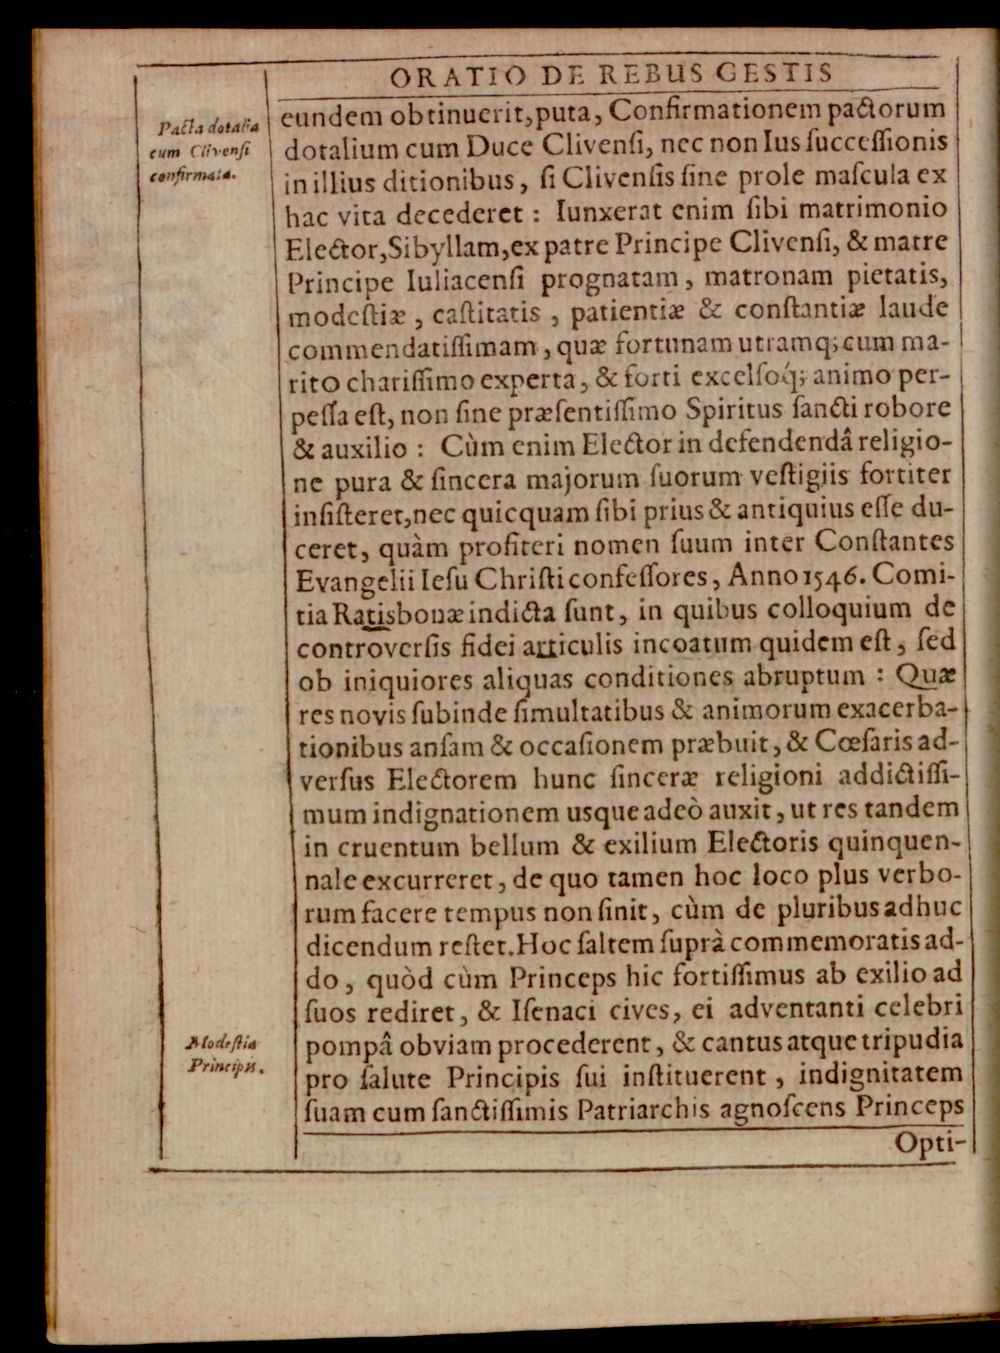 ORATIO DE REBUS GESTIS
Pacta dotalia
cum Clivenſi
confirmata.
eundem obtinuerit, puta, Confirmationem pactorum
dotalium cum Duce Clivenſi, nec non Ius ſucceſſionis
in illius ditionibus, ſi Clivenſis ſine prole maſcula ex
hac vita decederet : Iunxerat enim ſibi matrimonio
Elector, Sibyllam, ex patre Principe Clivenſi, & matre
Principe Iuliacenſi prognatam, matronam pietatis,
modeſtiæ, caſtitatis, patientiæ & conſtantiæ laude
commendatiſſimam, quæ fortunam utramq; cum ma-
rito chariſſimo experta, & forti excelſoq́; animo per-
peſſa eſt, non ſine præſentiſſimo Spiritus ſancti robore
& auxilio : Cùm enim Elector in defendendâ religio-
ne pura & ſincera majorum ſuorum veſtigiis fortiter
inſiſteret, nec quicquam ſibi prius & antiquius eſſe du-
ceret, quàm profiteri nomen ſuum inter Conſtantes
Evangelii Ieſu Chriſti confeſſores, Anno 1546. Comi-
tia Ratisbonæ indicta ſunt, in quibus colloquium de
controverſis fidei articulis incoatum quidem eſt, ſed
ob iniquiores aliquas conditiones abruptum : Quæ
res novis ſubinde ſimultatibus & animorum exacerba-
tionibus anſam & occaſionem præbuit, & Cœſaris ad-
verſus Electorem hunc ſinceræ religioni addictiſſi-
mum indignationem usque adeò auxit, ut res tandem
in cruentum bellum & exilium Electoris quinquen-
nale excurreret, de quo tamen hoc loco plus verbo-
rum facere tempus non ſinit, cùm de pluribus adhuc
dicendum reſtet. Hoc ſaltem ſuprà commemoratis ad-
do, quòd cùm Princeps hic fortiſſimus ab exilio ad
ſuos rediret, & Iſenaci cives, ei adventanti celebri
Modeſtia
Principis.
pompâ obviam procederent, & cantus atque tripudia
pro ſalute Principis ſui inſtituerent, indignitatem
ſuam cum ſanctiſſimis Patriarchis agnoſcens Princeps
Opti-